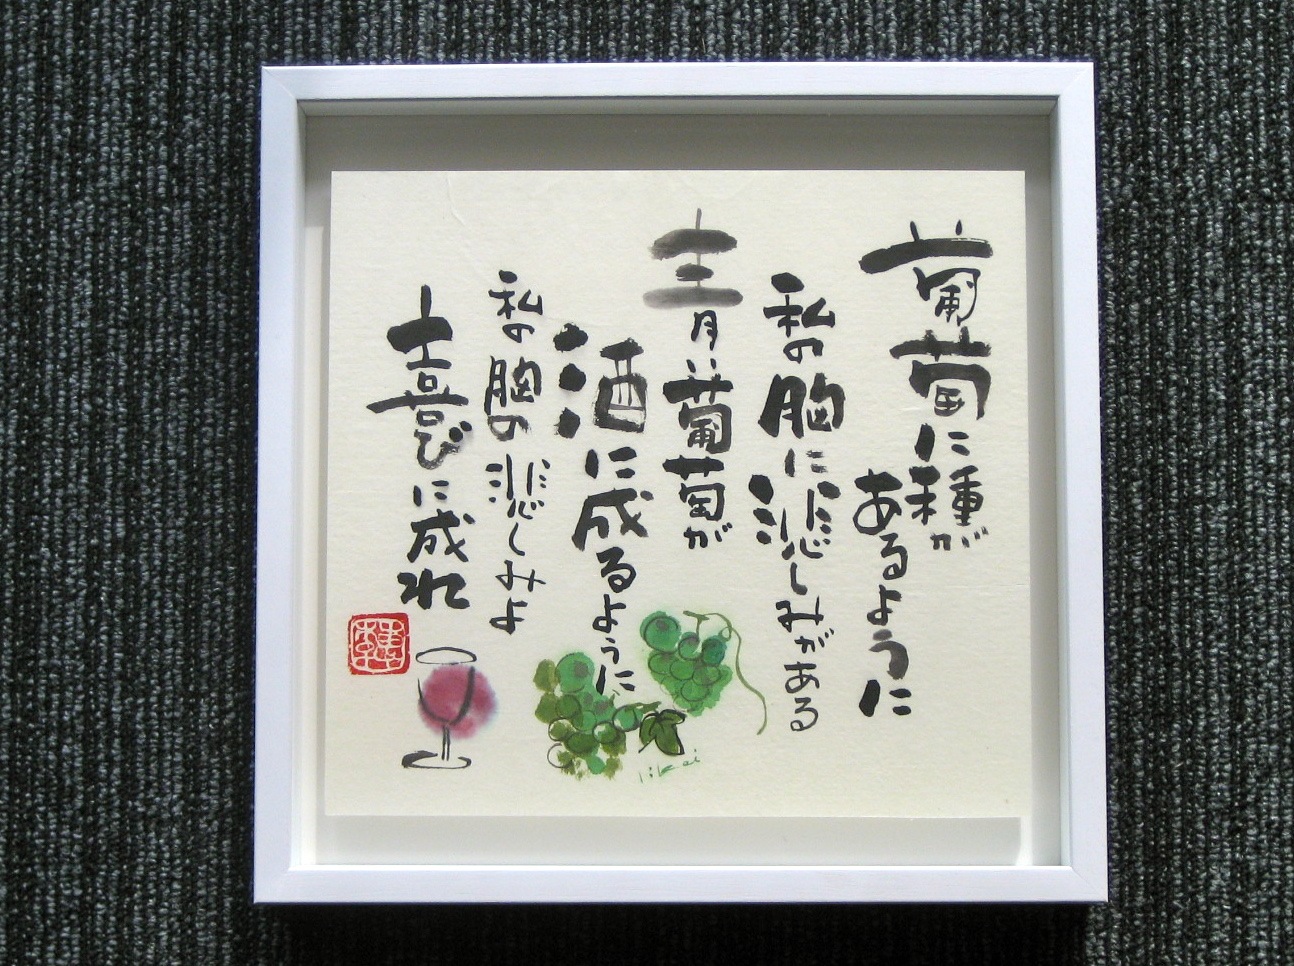 葡萄に種が
あるように
私の胸に
悲しみがある
青い葡萄が
酒に成るように
私の胸の
悲しみよ
喜びに成れ